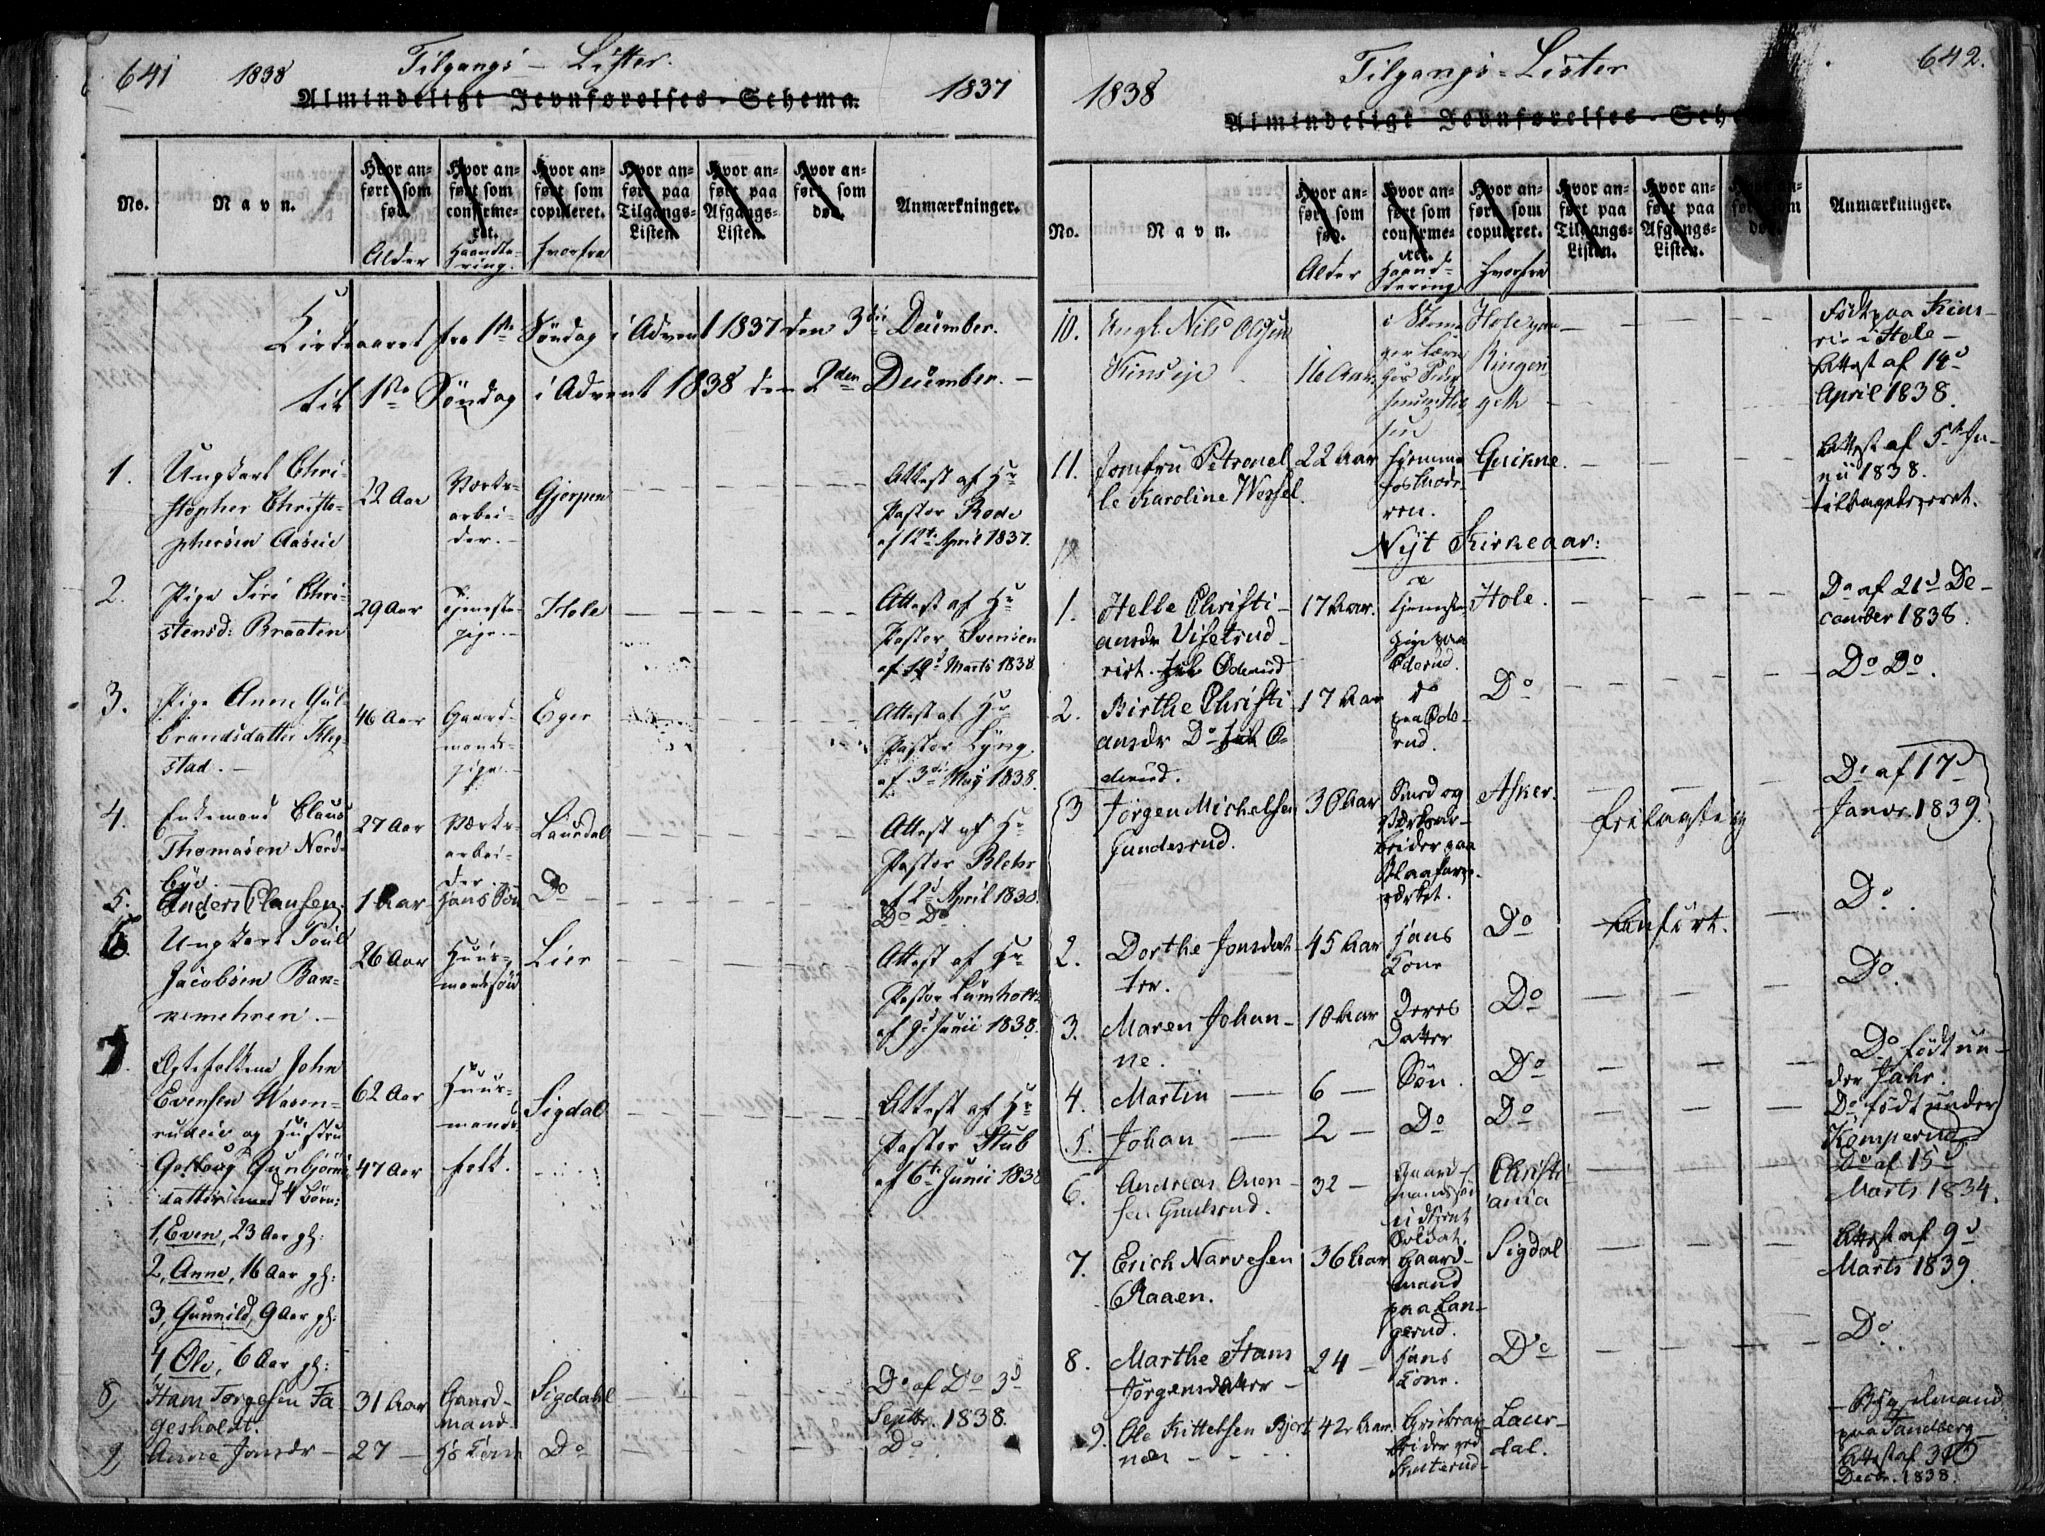 641 1838 Tilgangs-Lister. 1837
Almindeligt Jevnførelses-Schema.
No.
Navn.
Hvor an-
ført som
fød.
Alder
Hvor an-
ført som
confirme-
ret.
Haandte-
ring.
Hvor an-
ført som
copuleret.
hvorfra
Hvor an-
ført paa
Tilgangs-
Listen.
Hvor an-
ført paa
Afgangs-
Listen.
Hvor an-
ført som
død.
Anmærkninger.
Kirkeaaret fra 1ste Søndag i Advent 1837 den 3die December.
til 1ste Søndag i Advent 1838 den 2den December.
1.
Ungkarl Chri-
stopher Christo-
phersen Aaseie
22 Aar
Værks-
arbei-
der.
Gjerpen
Attest af Hr
Pastor Rode
af 12te April 1837.
2.
Pige Siri Chri-
stensd: Braaten
29 Aar
Tjeneste-
pige
Hole
Attest af Hr
Pastor Svensen
af 19d Marts 1838
3.
Pige Anne Gul-
brandsdatter
stad.
46 Aar
Gaard-
mands-
pige
Eger
Attest af Hr
Pastor Lyng
af 3die May 1838.
4.
Enkemand Claus
Thomasen Nord-
bye
27 Aar
Værks-
arbei-
der
Laurdal
Attest af Hr
Pastor Blehr
af 2d April 1838.
5.
Anders Clausen
1 Aar
hans Søn
Do
Do Do
6.
Ungkarl Poul
Jacobsen Ban-
nemehren.
26 Aar
Huus-
mandssøn
Lier
Attest af Hr
Pastor Lumholtz
af 9d Junii 1838.
7.
Ægtefolkene John
Evensen Wasen-
rudeie og Hustru
Golloug Gunbjørns-
datter med 4 Børn:
1, Even, 23 Aar gl:
2, Anne, 16 Aar gl:
3, Gunnild, 9 Aar gl:
4 Ole, 6 Aar gl:
62 Aar
47 Aar
Huus-
mands-
folk.
Sigdal
Attest af Hr
Pastor Stub
af 6te Junii 1838
8,
Hans Torgesen Fa-
gesholdt.
31 Aar
Gaard-
mand
Sigdahl
Do af Do 3d
Septbr. 1838.
9,
Anne Jonsdr
27
hs Kone
Do
Do
1838 Tilgangs-Lister 642.
Almindeligt Jevnførelses-Sche
No.
Navn.
Hvor an-
ført som
fød.
Alder
Hvor an-
ført som
confirme-
ret.
Haand-
tering
Hvor an-
ført som
copuleret.
Hvorfra
Hvor an-
ført paa
Tilgangs-
Listen.
Hvor an-
ført paa
Afgangs-
Listen.
Anmærkninger.
10.
Ungk. Nils Olsen
16 Aar.
Hole
Ringeri-
Født paa
i Hole
Attest af 14d
April 1838.
11.
Jomfru Petronel-
le Karoline Wessel.
22 Aar
hjemme
hos Mode-
ren.
Attest af 5te Ju-
nii 1838.
tilbageleveret.
Nyt Kirkeaar:
1.
Helle Christi-
ansdr Vifetrud
17 Aar.
tjeneste
pige paa
Oderud.
Hole.
Do af 21d De-
cember 1838.
2.
Birthe Christi-
ansdr Do
17 Aar
do
paa Ode-
rud.
Do
Do Do.
3
Jørgen Michelsen
Gundesrud.
30 Aar
Smed og
Værksar-
beider paa
Blaafarve-
værket.
Asker.
Do af 17d
Janvr. 1839.
2.
Dorthe Jonsdat-
ter.
45 Aar
hans
Kone
Do
Do.
3.
Maren Johan-
ne.
10 Aar
Deres
Datter
Do
Do.
4.
Martin
6
Søn.
Do
Do født un-
der Jahr.
5.
Johan
2
Do
Do
Do født under
Komperud
6.
Andreas
32
Gaard-
mandssøn
udtjent
Soldat.
Christi-
ania
Do af 15d
Marts 1834.
7.
Erich Narvesen
Raaen.
36 Aar
Gaard-
mand
paa Lan-
gerud.
Sigdal
Attest af 9d
Marts 1839.
8.
Marthe Hans
Jørgensdatter
24
hans
Kone.
Do
Do
9.
Ole Kittelsen
42 Aar.
Grubear-
beider ved
Skuterud
Laur-
dal.
paa Sandberg
Attest af
Decbr. 1838.